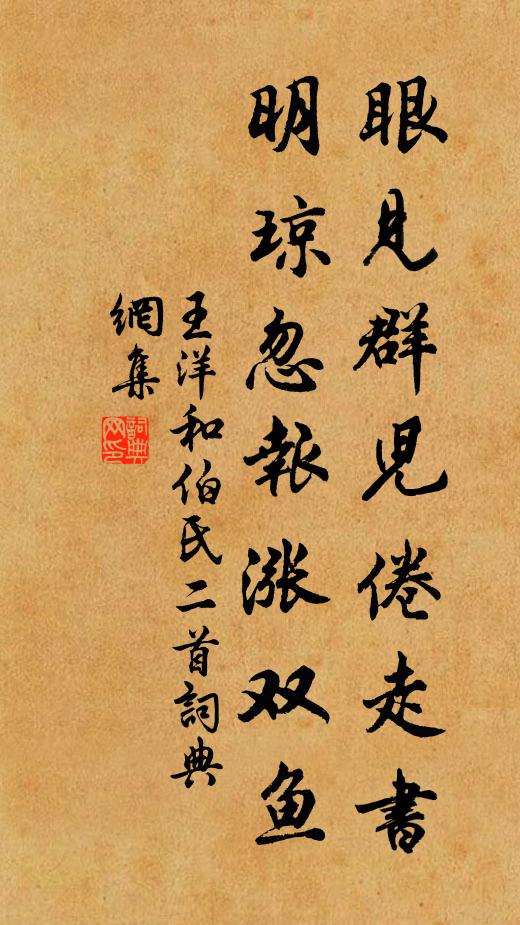 眼見群児倦走書
明琼忽報涨双鱼
王洋和伯氏二首詞典
網集
詞典网印